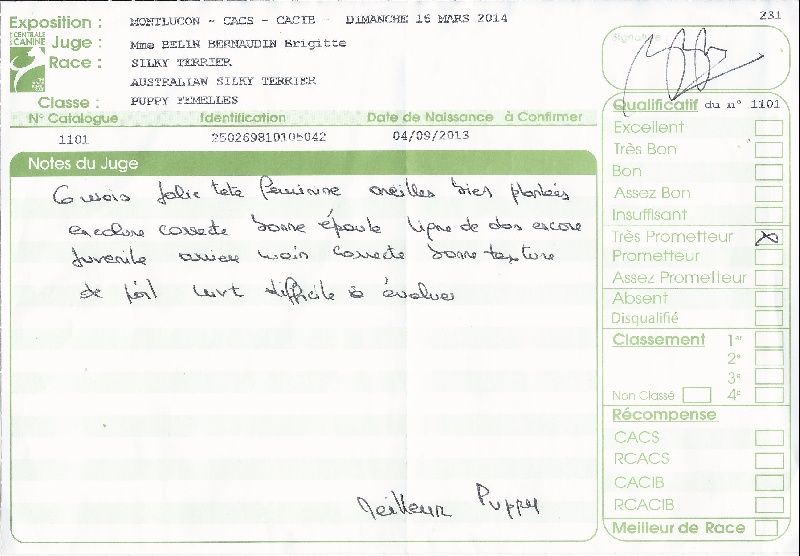 231
Exposition : MONTLUCON - CACS - CACIB - DIMANCHE 16 MARS 2014
CENTRALE CANINE
Juge : Mme BELIN BERNAUDIN Brigitte
Race : SILKY TERRIER
AUSTRALIAN SILKY TERRIER
Classe : PUPPY FEMELLES
N° Catalogue Identification Date de Naissance à Confirmer
1101 250269810105042 04/09/2013
Notes du Juge
6 mois jolie tete feminine oreilles bien plantées
encolure correcte bonne épaule ligne de dos encore
juvenile arriere mais correcte bonne texture
de poil difficile à évaluer
Meilleur Puppy
Signature
Qualificatif du n° 1101
Excellent
Très Bon
Bon
Assez Bon
Insuffisant
Très Prometteur X
Prometteur
Assez Prometteur
Absent
Disqualifié
Classement 1er
2e
3e
Non Classé 4e
Récompense
CACS
RCACS
CACIB
RCACIB
Meilleur de Race